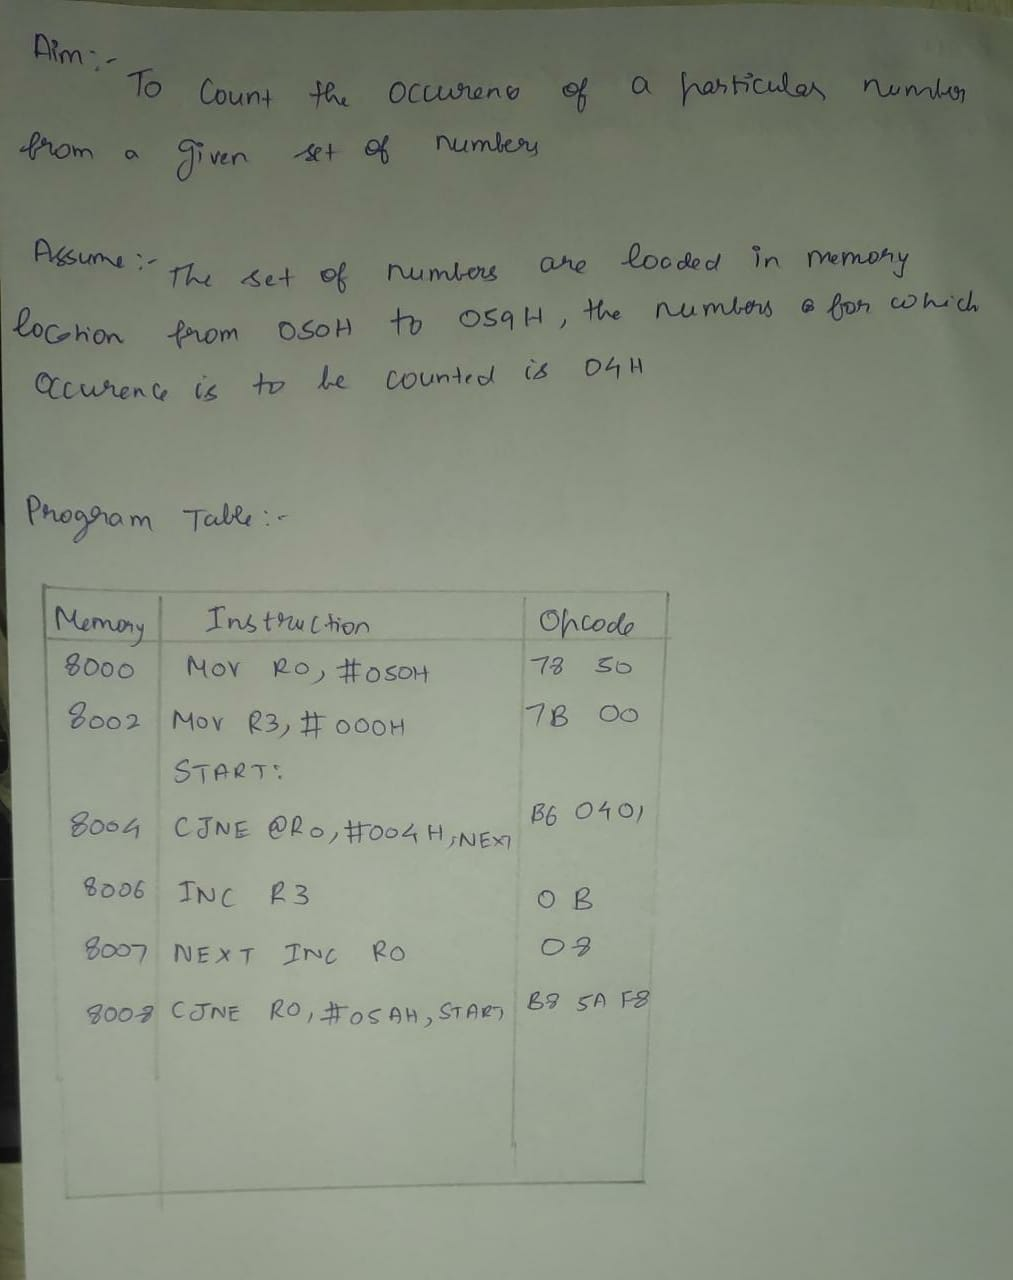 Aim:-
To Count the Occureno of a particular number
from a given set of numbers
Assume :- The set of numbers are loaded in memory
location from 050H to 059H, the numbers for which
Occurence is to be counted is 04H
Program Table:-
Memory Instruction Opcode
8000 MOV R0, #050H 78 50
8002 Mov R3, #000H 7B 00
START:
8004 CJNE @R0, #004H, NEXT B6 0401
8006 INC R3 0B
8007 NEXT INC R0 08
8008 CJNE R0, #05AH, START B8 5A F8